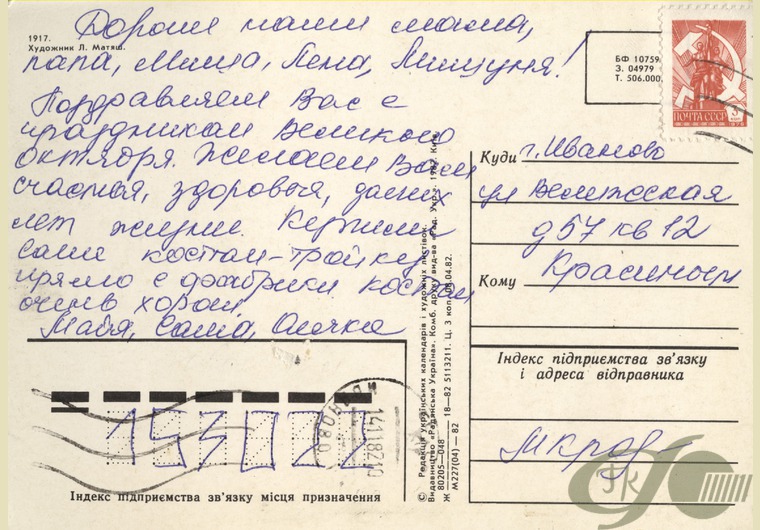 Дорогие наши мама,
папа, Миша, Лена, Мишуня!
Поздравляем Вас с
праздником Великого
октября. Желаем Вам
счастья, здоровья, долгих
лет жизни. Купили
Саше костюм-тройку
прямо с фабрики костюм
очень хорош
Майя, Саша, Олечка
1917.
Художник Л. Матяш.
БФ 10759
З. 04979
Т. 506.000
ПОЧТА СССР
Куди г. Иваново
ул Велижская
д 57 кв 12
Кому
Індекс підприємства зв'язку
і адреса відправника
© Редакція українських календарів і художніх листівок.
Видавництво «Радянська Україна». Комб. друку вид-ва «Рад. Укр.». 1982. Київ
80205—048
Ж М227(04) — 82 18—82 5113211. Ц. 3 коп. 08.04.82.
153022
Індекс підприємства зв'язку місця призначення